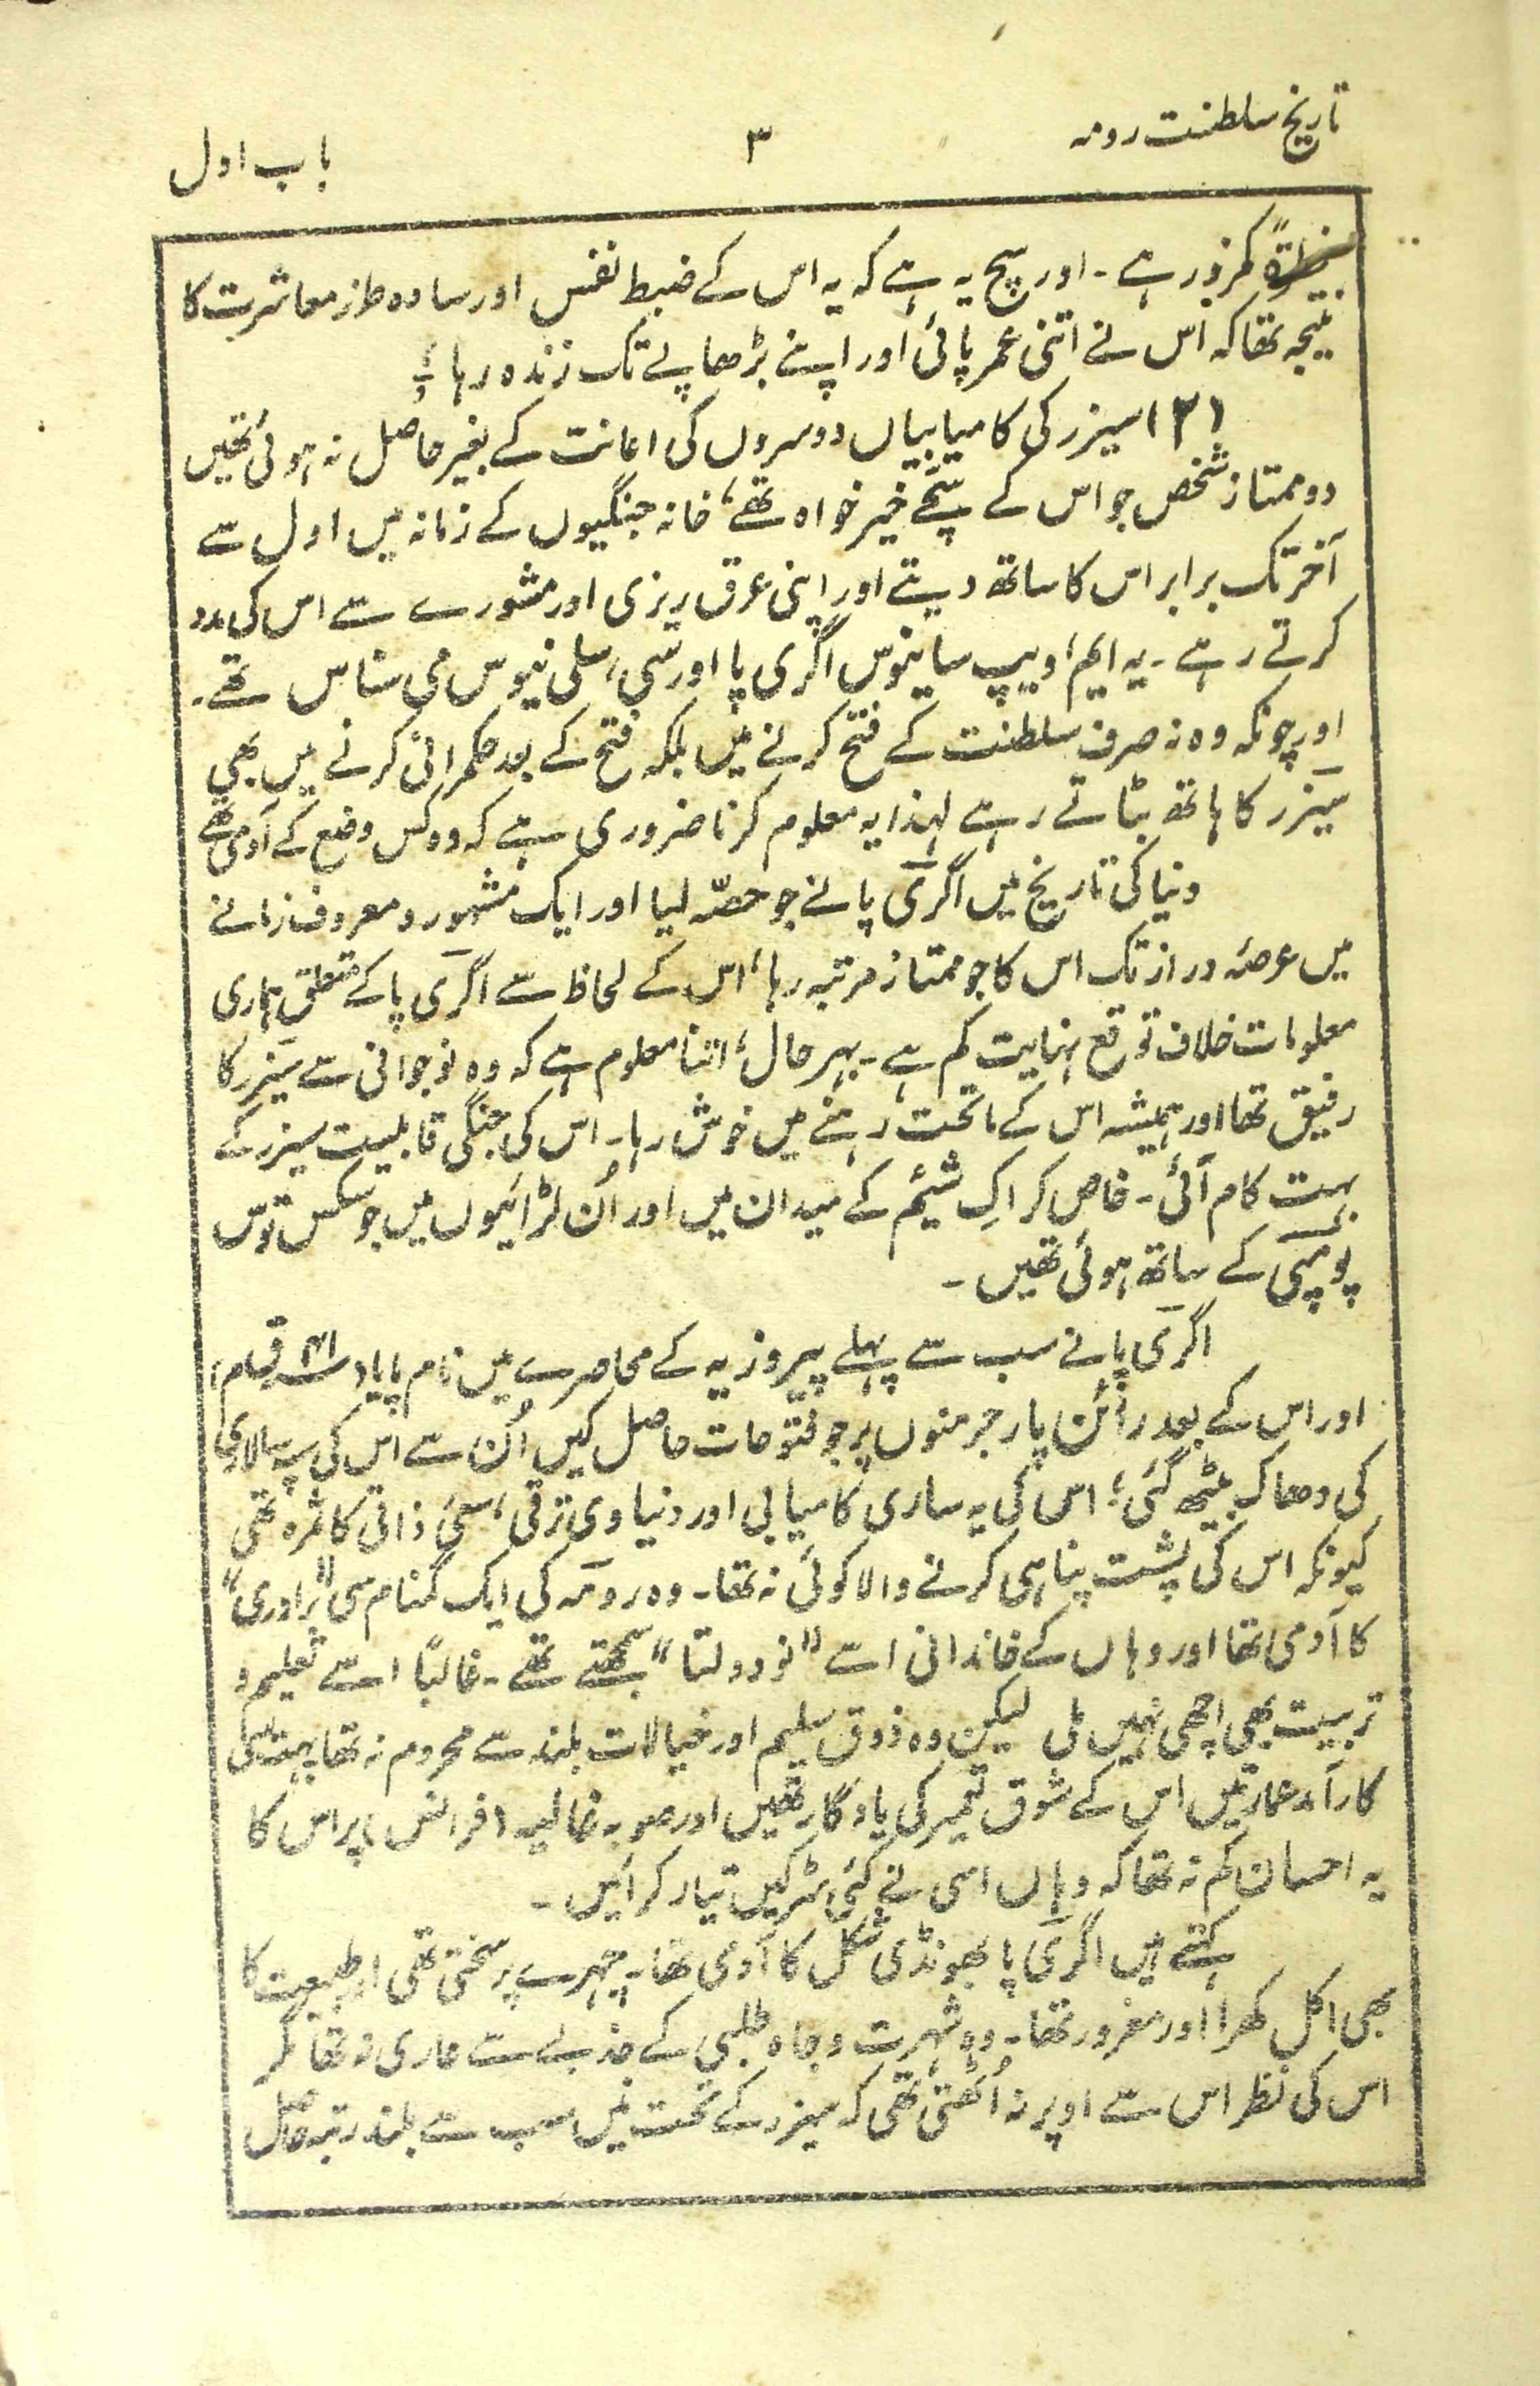 تاریخ سلطنت رومہ
۳
باب اول
کمزور ہے ۔ اور سچ یہ ہے کہ یہ اس کے ضبط نفس اور سادہ طرز معاشرت کا
نتیجہ تھا کہ اس نے اتنی عمر پائی اور اپنے بڑھاپے تک زندہ رہا ؛
(۲) سیزر کی کامیابیاں دوسروں کی اعانت کے بغیر حاصل نہ ہوئی تھیں
دو ممتاز شخص جو اس کے سچے خیر خواہ تھے، خانہ جنگیوں کے زمانہ میں اول سے
آخر تک برابر اس کا ساتھ دیتے اور اپنی عرق ریزی اور مشورے سے اس کی مدد
کرتے رہے ۔ یہ ایم، ویپ سانیوس اگری پا اور سی، سلی نیوس می سناس تھے ۔
اور چونکہ وہ نہ صرف سلطنت کے فتح کرنے میں بلکہ فتح کے بعد حکمرانی کرنے میں بھی
سیزر کا ہاتھ بٹاتے رہے لہذا یہ معلوم کرنا ضروری ہے کہ وہ کس وضع کے آدمی تھے
دنیا کی تاریخ میں اگری پا نے جو حصّہ لیا اور ایک مشہور و معروف زمانے
میں عرصۂ دراز تک اس کا جو ممتاز مرتبہ رہا، اس کے لحاظ سے اگری پا کے متعلق ہماری
معلومات خلاف توقع نہایت کم ہے ۔ بہر حال، اتنا معلوم ہے کہ وہ نوجوانی سے سیزر کا
رفیق تھا اور ہمیشہ اس کے ماتحت رہنے میں خوش رہا ۔ اس کی جنگی قابلیت سیزر کے
بہت کام آئی ۔ خاص کر اک شیئم کے میدان میں اور اُن لڑائیوں میں جو سکس توس
پومپی کے ساتھ ہوئی تھیں ۔
اگری پا نے سب سے پہلے پیروزیہ کے محاصرے میں نام پایا (۴۱ ق م)
اور اس کے بعد رائن پار جرمنوں پر جو فتوحات حاصل کیں اُن سے اس کی سپہ سالاری
کی دھاک بیٹھ گئی؛ اس کی یہ ساری کامیابی اور دنیاوی ترقی، سعئ ذاتی کا ثمرہ تھی
کیونکہ اس کی پشت پناہی کرنے والا کوئی نہ تھا ۔ وہ رومہ کی ایک گمنام سی "برادری"
کا آدمی تھا اور وہاں کے خاندانی اسے "نو دولتا" سمجھتے تھے ۔ غالبًا اسے تعلیم و
تربیت بھی اچھی نہیں ملی لیکن وہ ذوق سلیم اور خیالات بلند سے محروم نہ تھا بہت سی
کارآمد عمارتیں اس کے شوق تعمیر کی یادگار تھیں اور صوبہ غالیہ (فرانس) پر اس کا
یہ احسان کم نہ تھا کہ وہاں اسی نے کئی سڑکیں تیار کرائیں ۔
کہتے ہیں اگری پا بھونڈی شکل کا آدمی تھا ۔ چہرے پر سختی تھی اور طبیعت کا
بھی اکل کھرا اور مغرور تھا ۔ وہ شہرت و جاہ طلبی کے جذبے سے عاری نہ تھا مگر
اس کی نظر اس سے اوپر نہ اُٹھتی تھی کہ سیزر کے تحت میں سب سے بلند رتبہ حاصل